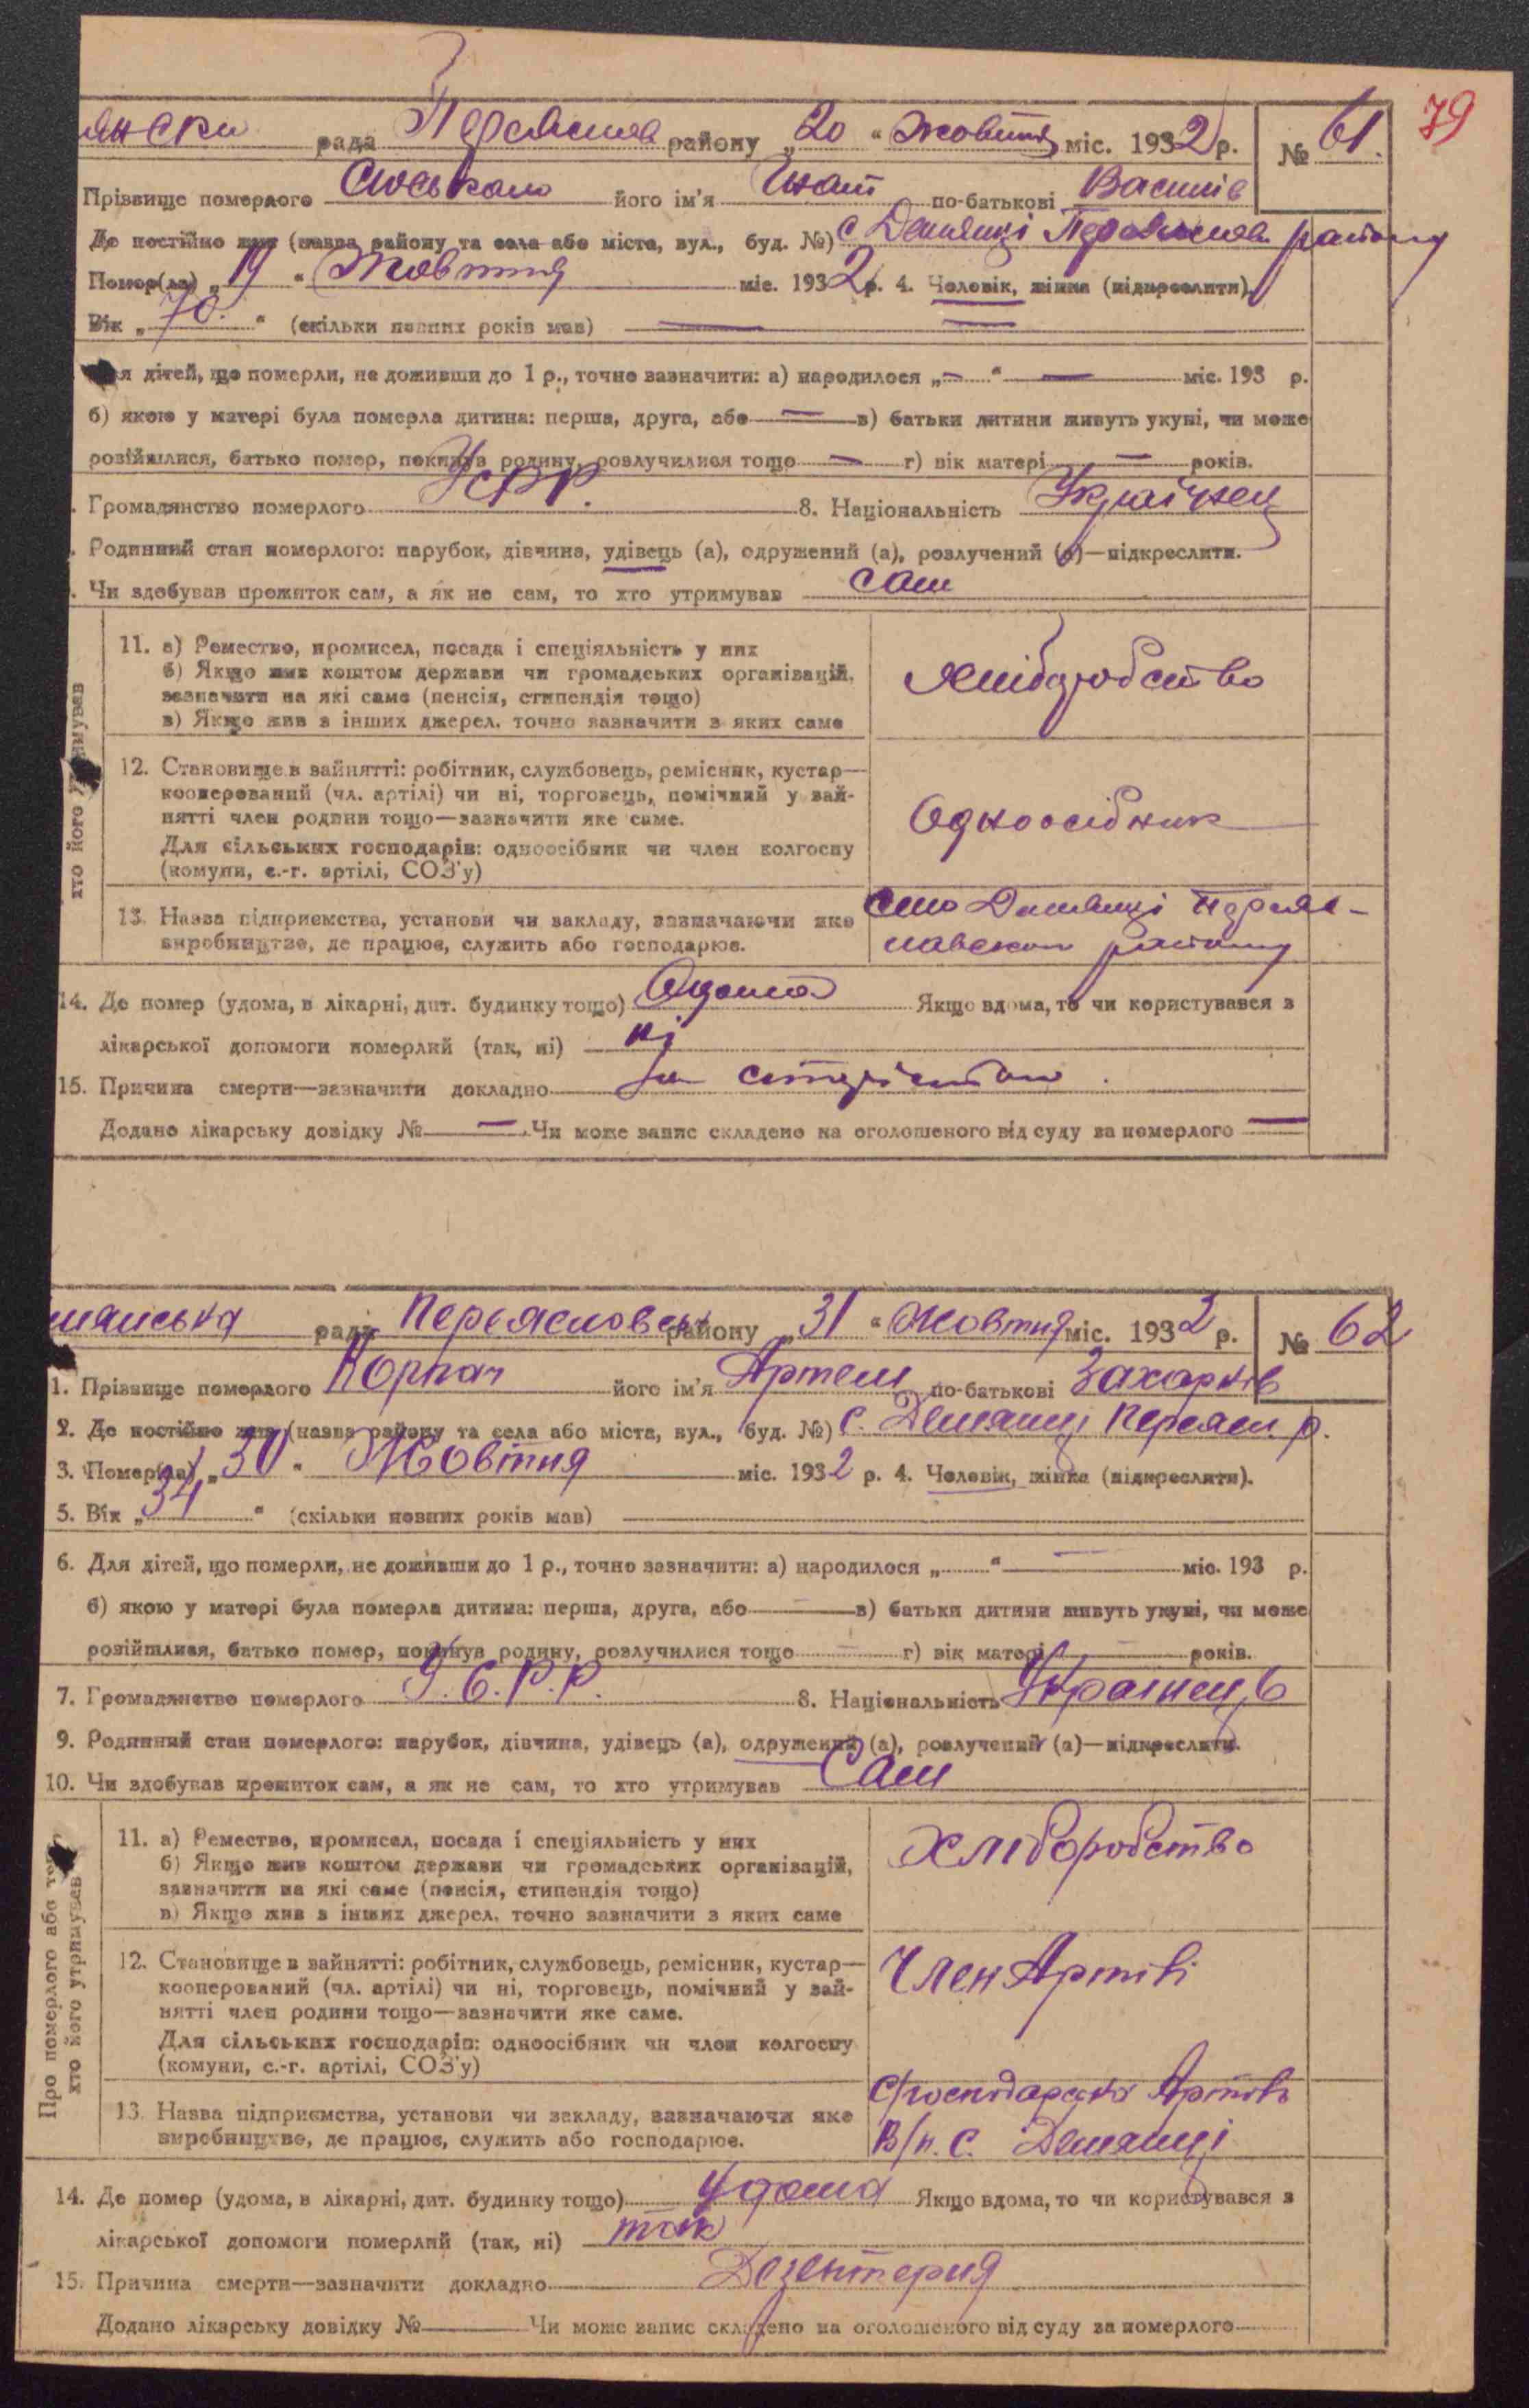 79
рада Переяслав району „20“ Жовтня міс. 1932 р. № 61.
Прізвище померлого його ім'я Гнат по-батькові Василів
Де постійно жив (назва району та села або міста, вул., буд. №) с Демянці Переяслав. району
Помер(ла) „19“ Жовтня міс. 1932 р. 4. Чоловік, жінка (підкреслити).
Вік „70.“ (скільки повних років мав) — —
я дітей, що померли, не доживши до 1 р., точно зазначити: а) народилося „—“ — міс. 193 р.
б) якою у матері була померла дитина: перша, друга, або — в) батьки дитини живуть укупі, чи може
розійшлися, батько помер, покинув родину, розлучилися тощо — г) вік матері — років.
Громадянство померлого УСРР. 8. Національність Українец
Родинний стан померлого: парубок, дівчина, удівець (а), одружений (а), розлучений (а)—підкреслити.
Чи здобував прожиток сам, а як не сам, то хто утримував сам
хто його утримував
11. а) Ремество, промисел, посада і спеціяльність у них
б) Якщо жив коштом держави чи громадських організацій,
зазначити на які саме (пенсія, стипендія тощо)
в) Якщо жив з інших джерел, точно зазначити з яких саме
Хліборобство
12. Становище в зайнятті: робітник, службовець, ремісник, кустар—
кооперований (чл. артілі) чи ні, торговець, помічний у зай-
нятті член родини тощо—зазначити яке саме.
Для сільських господарів: одноосібник чи член колгоспу
(комуни, с.-г. артілі, СОЗ'у)
Одноосібник
13. Назва підприємства, установи чи закладу, зазначаючи яке
виробництво, де працює, служить або господарює.
село Демянці Переяс-
лавском району
14. Де помер (удома, в лікарні, дит. будинку тощо) Якщо вдома, то чи користувався з
лікарської допомоги померлий (так, ні) ні
15. Причина смерти—зазначити докладно
Додано лікарську довідку № — Чи може запис складено на оголошеного від суду за померлого —
рада Переясловськ району „31“ Жовтня міс. 1932 р. № 62
1. Прізвище померлого Корпач його ім'я Артем по-батькові Захарків
2. Де постійно жив (назва району та села або міста, вул., буд. №) с. Демянці Переясл. р.
3. Помер(ла) „30“ Жовтня міс. 1932 р. 4. Чоловік, жінка (підкреслити).
5. Вік „34“ (скільки повних років мав)
6. Для дітей, що померли, не доживши до 1 р., точно зазначити: а) народилося „ “ — міс. 193 р.
б) якою у матері була померла дитина: перша, друга, або — в) батьки дитини живуть укупі, чи може
розійшлися, батько помер, покинув родину, розлучилися тощо — г) вік матері — років.
7. Громадянство померлого У.С.Р.Р. 8. Національність Українець
9. Родинний стан померлого: парубок, дівчина, удівець (а), одружений (а), розлучений (а)—підкреслити.
10. Чи здобував прожиток сам, а як не сам, то хто утримував Сам
Про померлого або того
хто його утримував
11. а) Ремество, промисел, посада і спеціяльність у них
б) Якщо жив коштом держави чи громадських організацій,
зазначити на які саме (пенсія, стипендія тощо)
в) Якщо жив з інших джерел, точно зазначити з яких саме
Хліборобство
12. Становище в зайнятті: робітник, службовець, ремісник, кустар—
кооперований (чл. артілі) чи ні, торговець, помічний у зай-
нятті член родини тощо—зазначити яке саме.
Для сільських господарів: одноосібник чи член колгоспу
(комуни, с.-г. артілі, СОЗ'у)
Член Артілі
13. Назва підприємства, установи чи закладу, зазначаючи яке
виробництво, де працює, служить або господарює.
с/господарська Артіль
В/п. С. Демянці
14. Де помер (удома, в лікарні, дит. будинку тощо) Удома Якщо вдома, то чи користувався з
лікарської допомоги померлий (так, ні) так
15. Причина смерти—зазначити докладно Дезентерия
Додано лікарську довідку № Чи може запис складено на оголошеного від суду за померлого